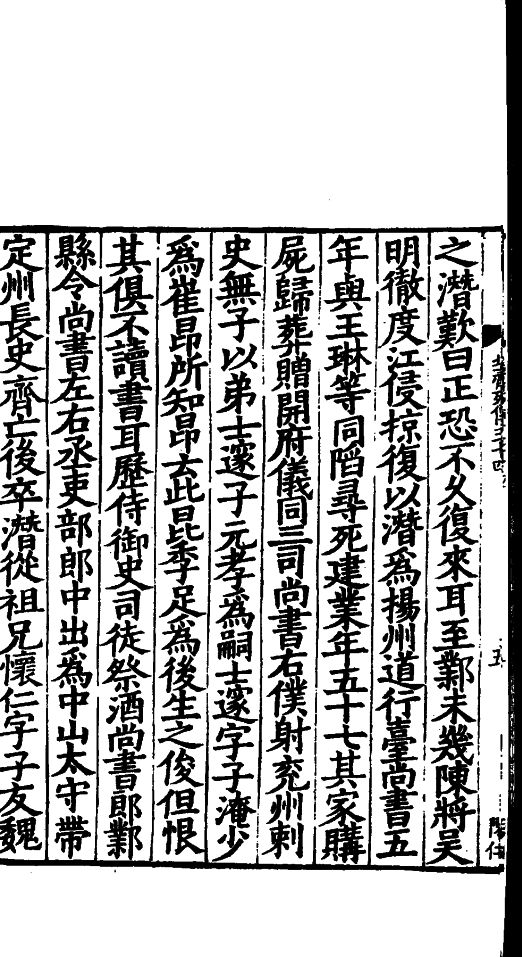 之潛歎曰正恐不久復來耳至鄴未幾陳將吳
明徹度江侵掠復以潛爲揚州道行臺尚書五
年與王琳等同䧟尋死建業年五十七其家購
屍歸葬贈開府儀同三司尚書右僕射兖州刺
史無子以弟士邃子元孝爲嗣士邃字子淹少
爲崔昂所知昂云此昆季足爲後生之俊但恨
其俱不讀書耳歷侍御史司徒祭酒尚書郎鄴
縣令尚書左右丞吏部郎中出爲中山太守帶
定州長史齊亡後卒潛從祖兄懷仁字子友魏